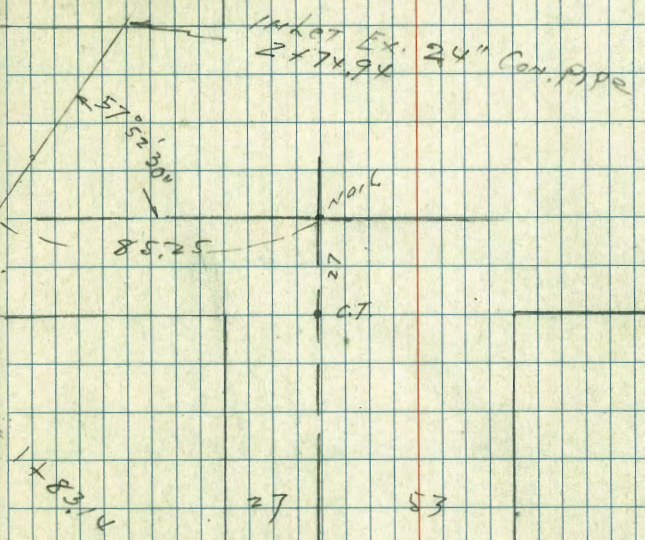 Inlet Ex. 24" Con. Pipe
2+74.94
57° 52' 30"
Nail
85.25
27
C.T.
1+83.14
27 53